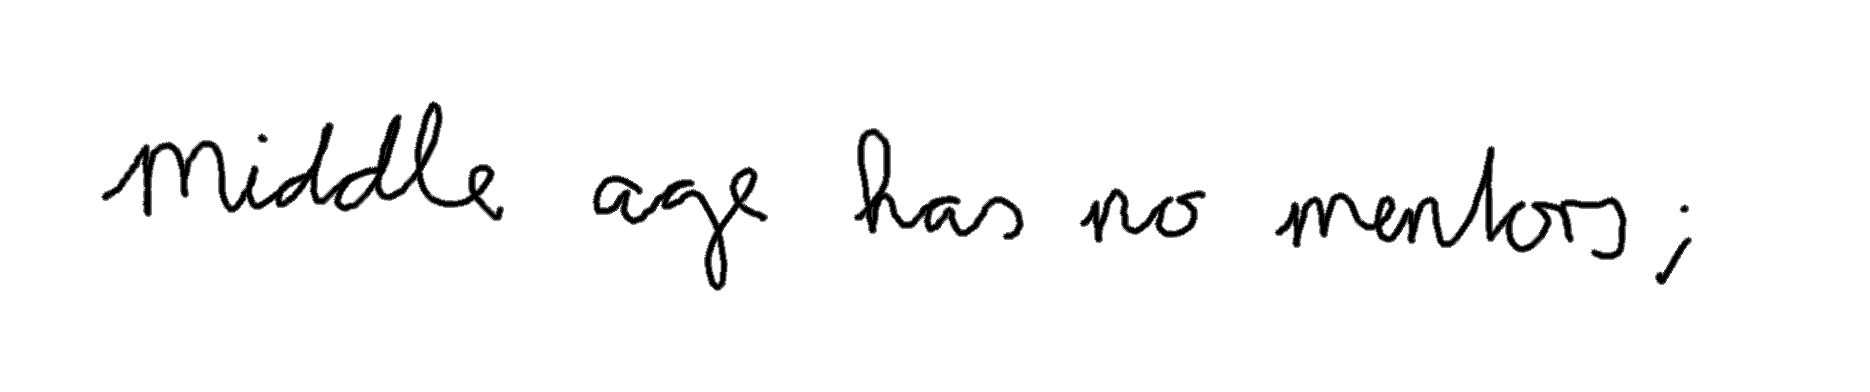 middle age has no mentors;